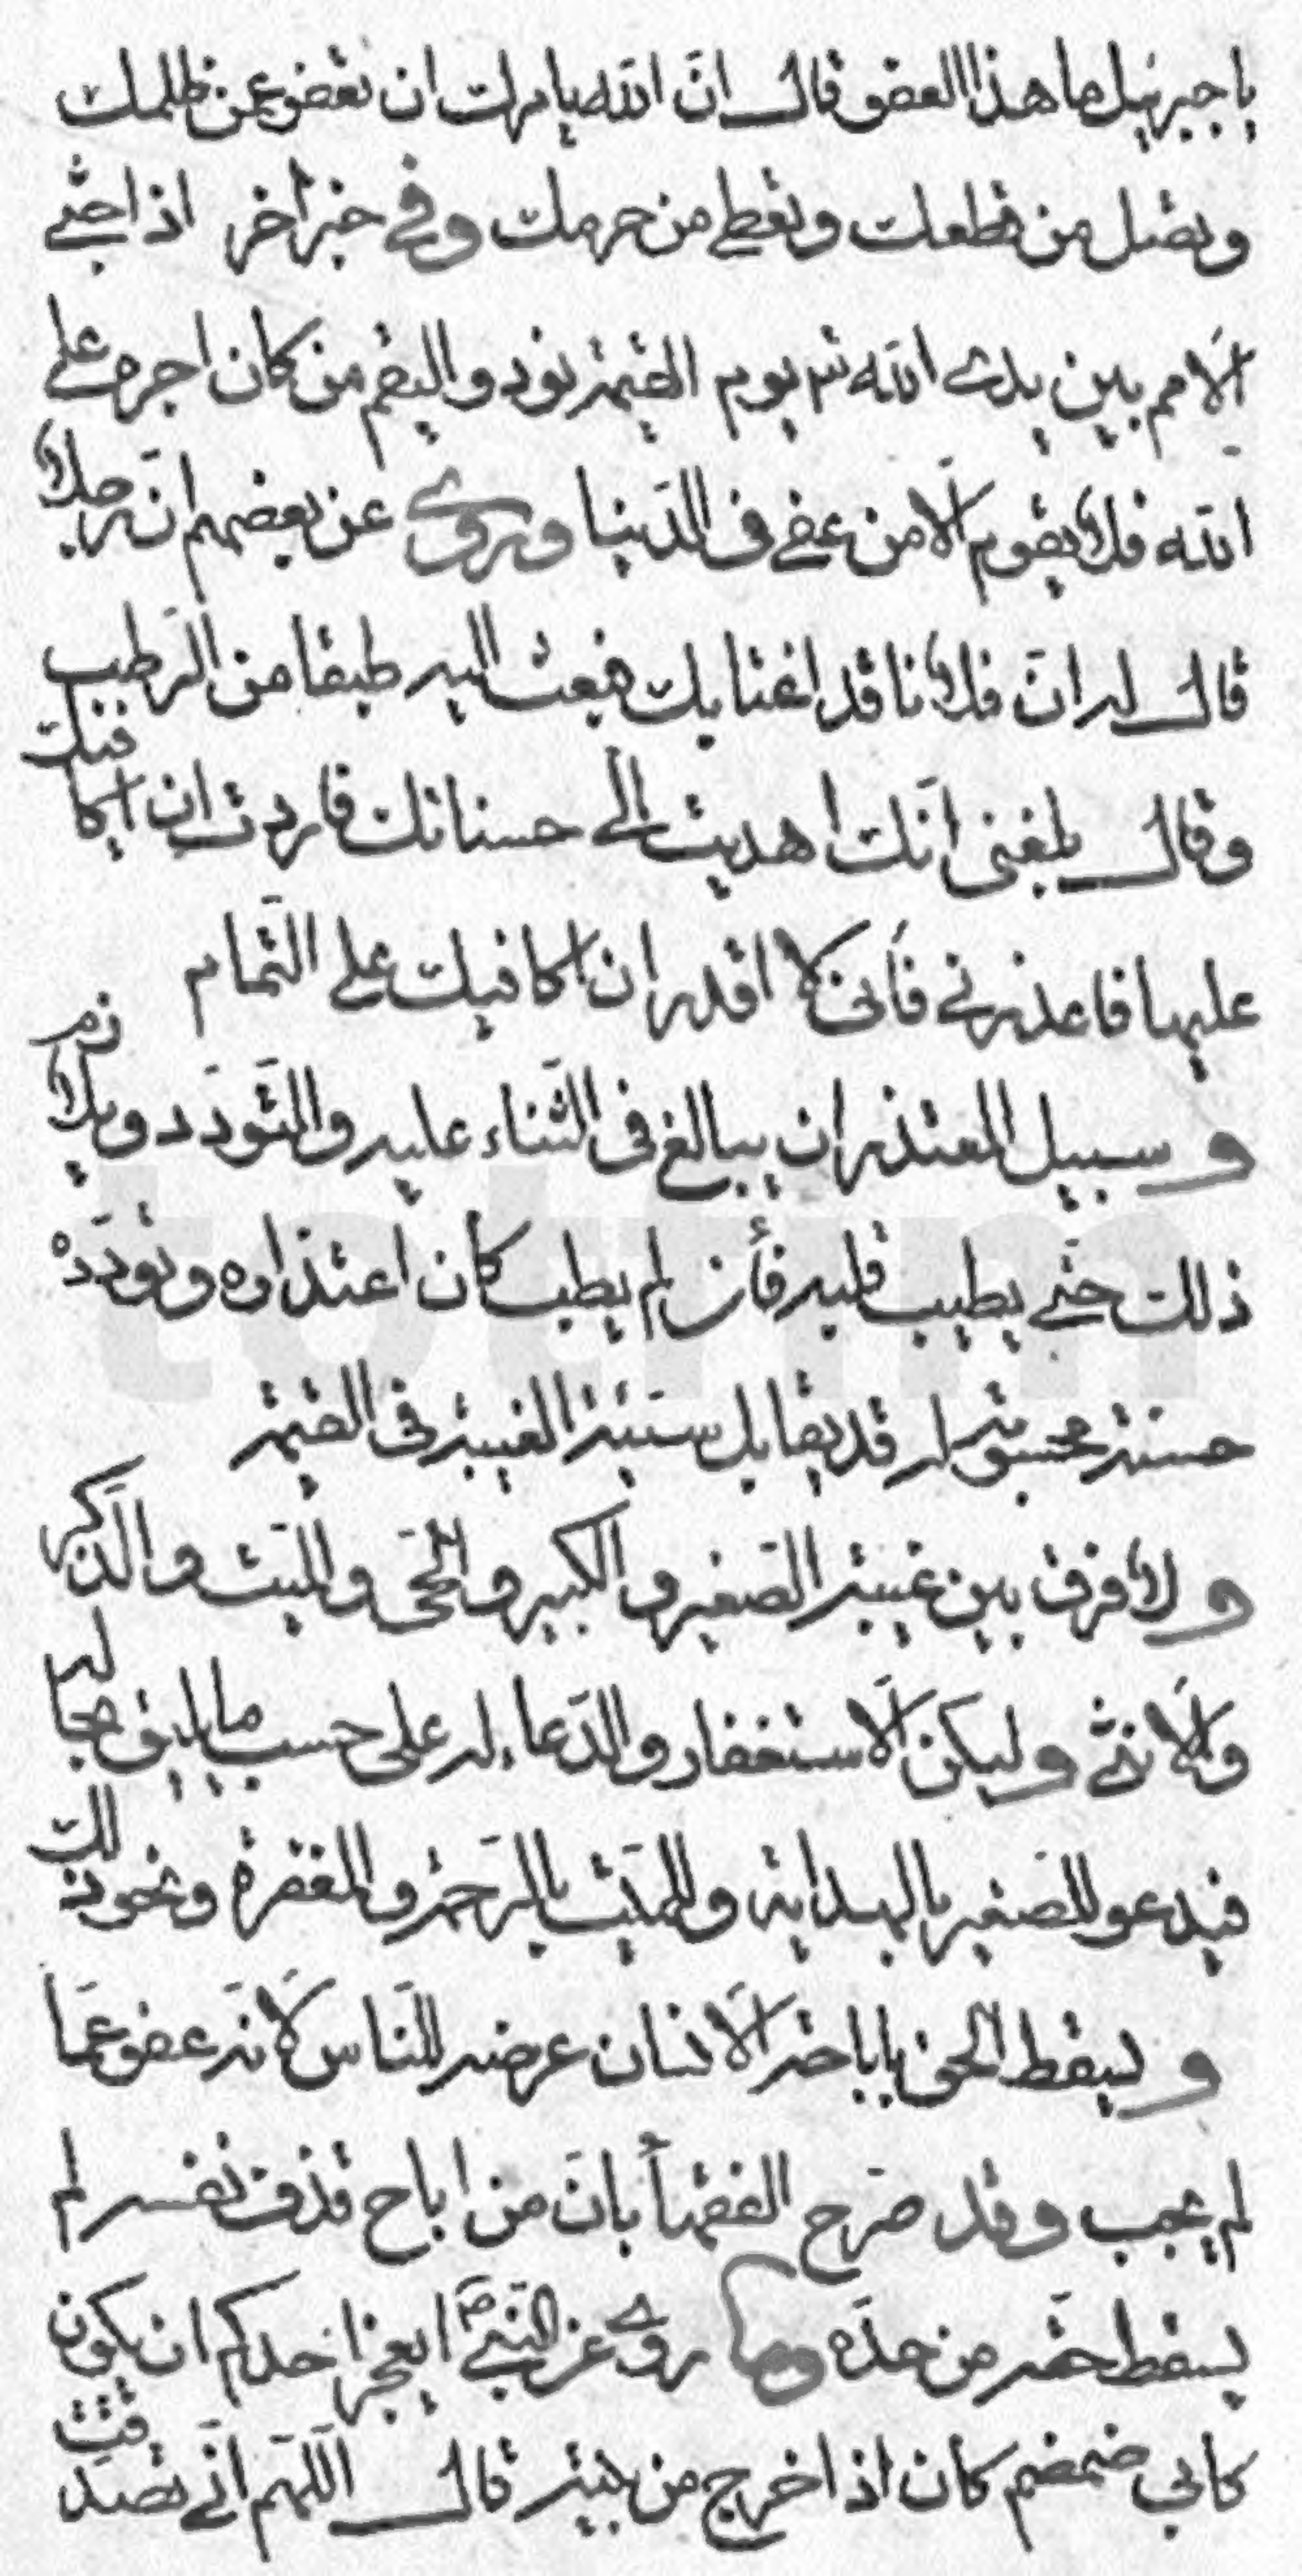 يا جبرئيل ما هذا العفو قال ان الله يامرك ان تعفو عمن ظلمك
وتصل من قطعك وتعطي من حرمك وفي خبر اخر اذا جثي
الامم بين يدي الله تم يوم القيمة نودوا ليقم من كان اجره على
الله فلا يقوم الا من عفي في الدنيا وروي عن بعضهم ان رجلا
قال له ان فلانا قد اغتابك فبعث اليه طبقا من الرطب
وقال بلغني انك اهديت الي حسناتك فاردت ان اكافيك
عليها فاعذرني فأني لا اقدر ان اكافيك على التمام
وسبيل المعتذر ان يبالغ في الثناء عليه والتودد ويلازم
ذلك حتي يطيب قلبه فأن لم يطب كان اعتذاره وتودده
حسنة محسوبة له قد يقابل سيئة الغيبة في القيمة
ولا فرق بين غيبة الصغير والكبير والحي والميت والذكر
والانثي وليكن الاستغفار والدعاء له على حسب ما يليق بحاله
فيدعو للصغير بالهداية وللميت بالرحمة والمغفرة ونحو ذلك
وليسقط الحق باباحة الانسان عرضه للناس لانه عفو عما
لم يجب وقد صرح الفقهأ بان من اباح قذف نفسه لم
يسقط حقه من حده وما روي عن النبي ص ايعجز احدكم ان يكون
كابي ضمضم كان اذا خرج من بيته قال اللهم اني تصدقت